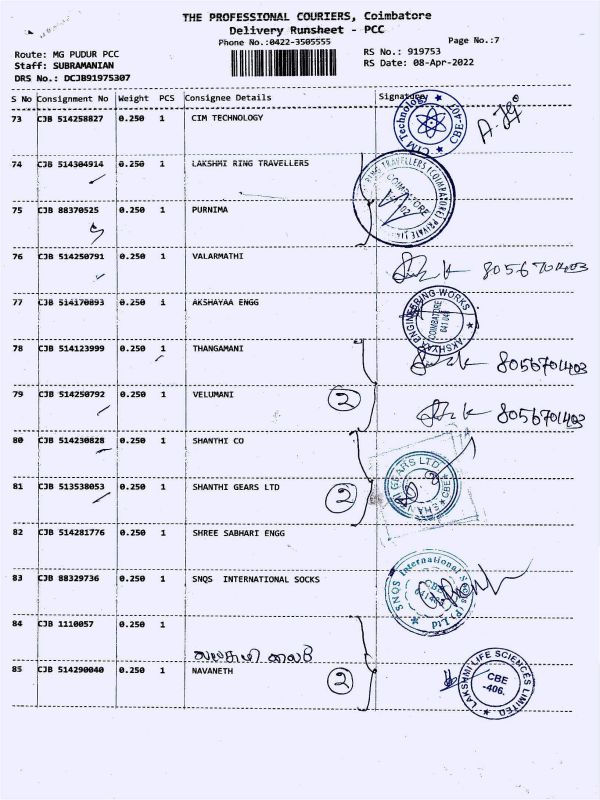 THE PROFESSIONAL COURIERS, Coimbatore
Delivery Runsheet - PCC
Phone No.:0422-3505555
Page No.:7
Route: MG PUDUR PCC
RS No.: 919753
Staff: SUBRAMANIAN
RS Date: 08-Apr-2022
DRS No.: DCJB91975307
S No Consignment No Weight PCS Consignee Details Signature
73 CJB 514258827 0.250 1 CIM TECHNOLOGY
CIM Technology CBE-407
74 CJB 514304914 0.250 1 LAKSHMI RING TRAVELLERS
RING TRAVELLERS (COIMBATORE) PRIVATE
COIMBATORE
75 CJB 88370525 0.250 1 PURNIMA
76 CJB 514250791 0.250 1 VALARMATHI
8056701403
77 CJB 514170893 0.250 1 AKSHAYAA ENGG
AKSHAYAA ENGINEERING WORKS
COIMBATORE
78 CJB 514123999 0.250 1 THANGAMANI
8056701403
79 CJB 514250792 0.250 1 VELUMANI
2
8056701403
80 CJB 514230828 0.250 1 SHANTHI CO
81 CJB 513538053 0.250 1 SHANTHI GEARS LTD
2
SHANTHI GEARS LTD CBE
82 CJB 514281776 0.250 1 SHREE SABHARI ENGG
83 CJB 88329736 0.250 1 SNQS INTERNATIONAL SOCKS
SNQS International Socks (P) Ltd
84 CJB 1110057 0.250 1
85 CJB 514290040 0.250 1 NAVANETH
2
LAKSHMI LIFE SCIENCES LIMITED
CBE
-406.